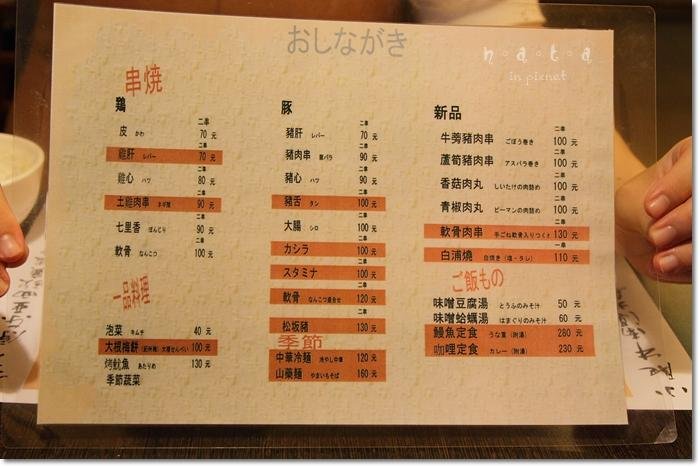 おしながき
n·a·t·a
in pixnet
串焼
鶏
二串
皮 かわ 70 元
二串
雞肝 レバー 70 元
二串
雞心 ハツ 80 元
二串
土雞肉串 ネギ間 90 元
二串
七里香 ぼんじり 90 元
二串
軟骨 なんこつ 100 元
一品料理
泡菜 キムチ 40 元
大根梅餅 (紀州梅) 大根せんべい 100 元
烤魷魚 あたりめ 130 元
季節蔬菜
豚
二串
豬肝 レバー 100 元
二串
豬肉串 豚バラ 90 元
二串
豬心 ハツ 90 元
二串
豬舌 タン 100 元
二串
大腸 シロ 100 元
二串
カシラ 100 元
二串
スタミナ 100 元
二串
軟骨 なんこつ盛合せ 120 元
二串
松坂豬 130 元
季節
中華冷麺 冷やし中華 120 元
山藥麺 やまいもそば 160 元
新品
二串
牛蒡豬肉串 ごぼう巻き 100 元
二串
蘆筍豬肉串 アスパラ巻き 100 元
二串
香菇肉丸 しいたけの肉詰め 100 元
二串
青椒肉丸 ピーマンの肉詰め 100 元
二串
軟骨肉串 手ごね軟骨入りつくね 130 元
一串
白浦燒 白焼き (塩・タレ) 110 元
ご飯もの
味噌豆腐湯 とうふのみそ汁 50 元
味噌蛤蠣湯 はまぐりのみそ汁 60 元
鰻魚定食 うな重 (附湯) 280 元
咖哩定食 カレー (附湯) 230 元